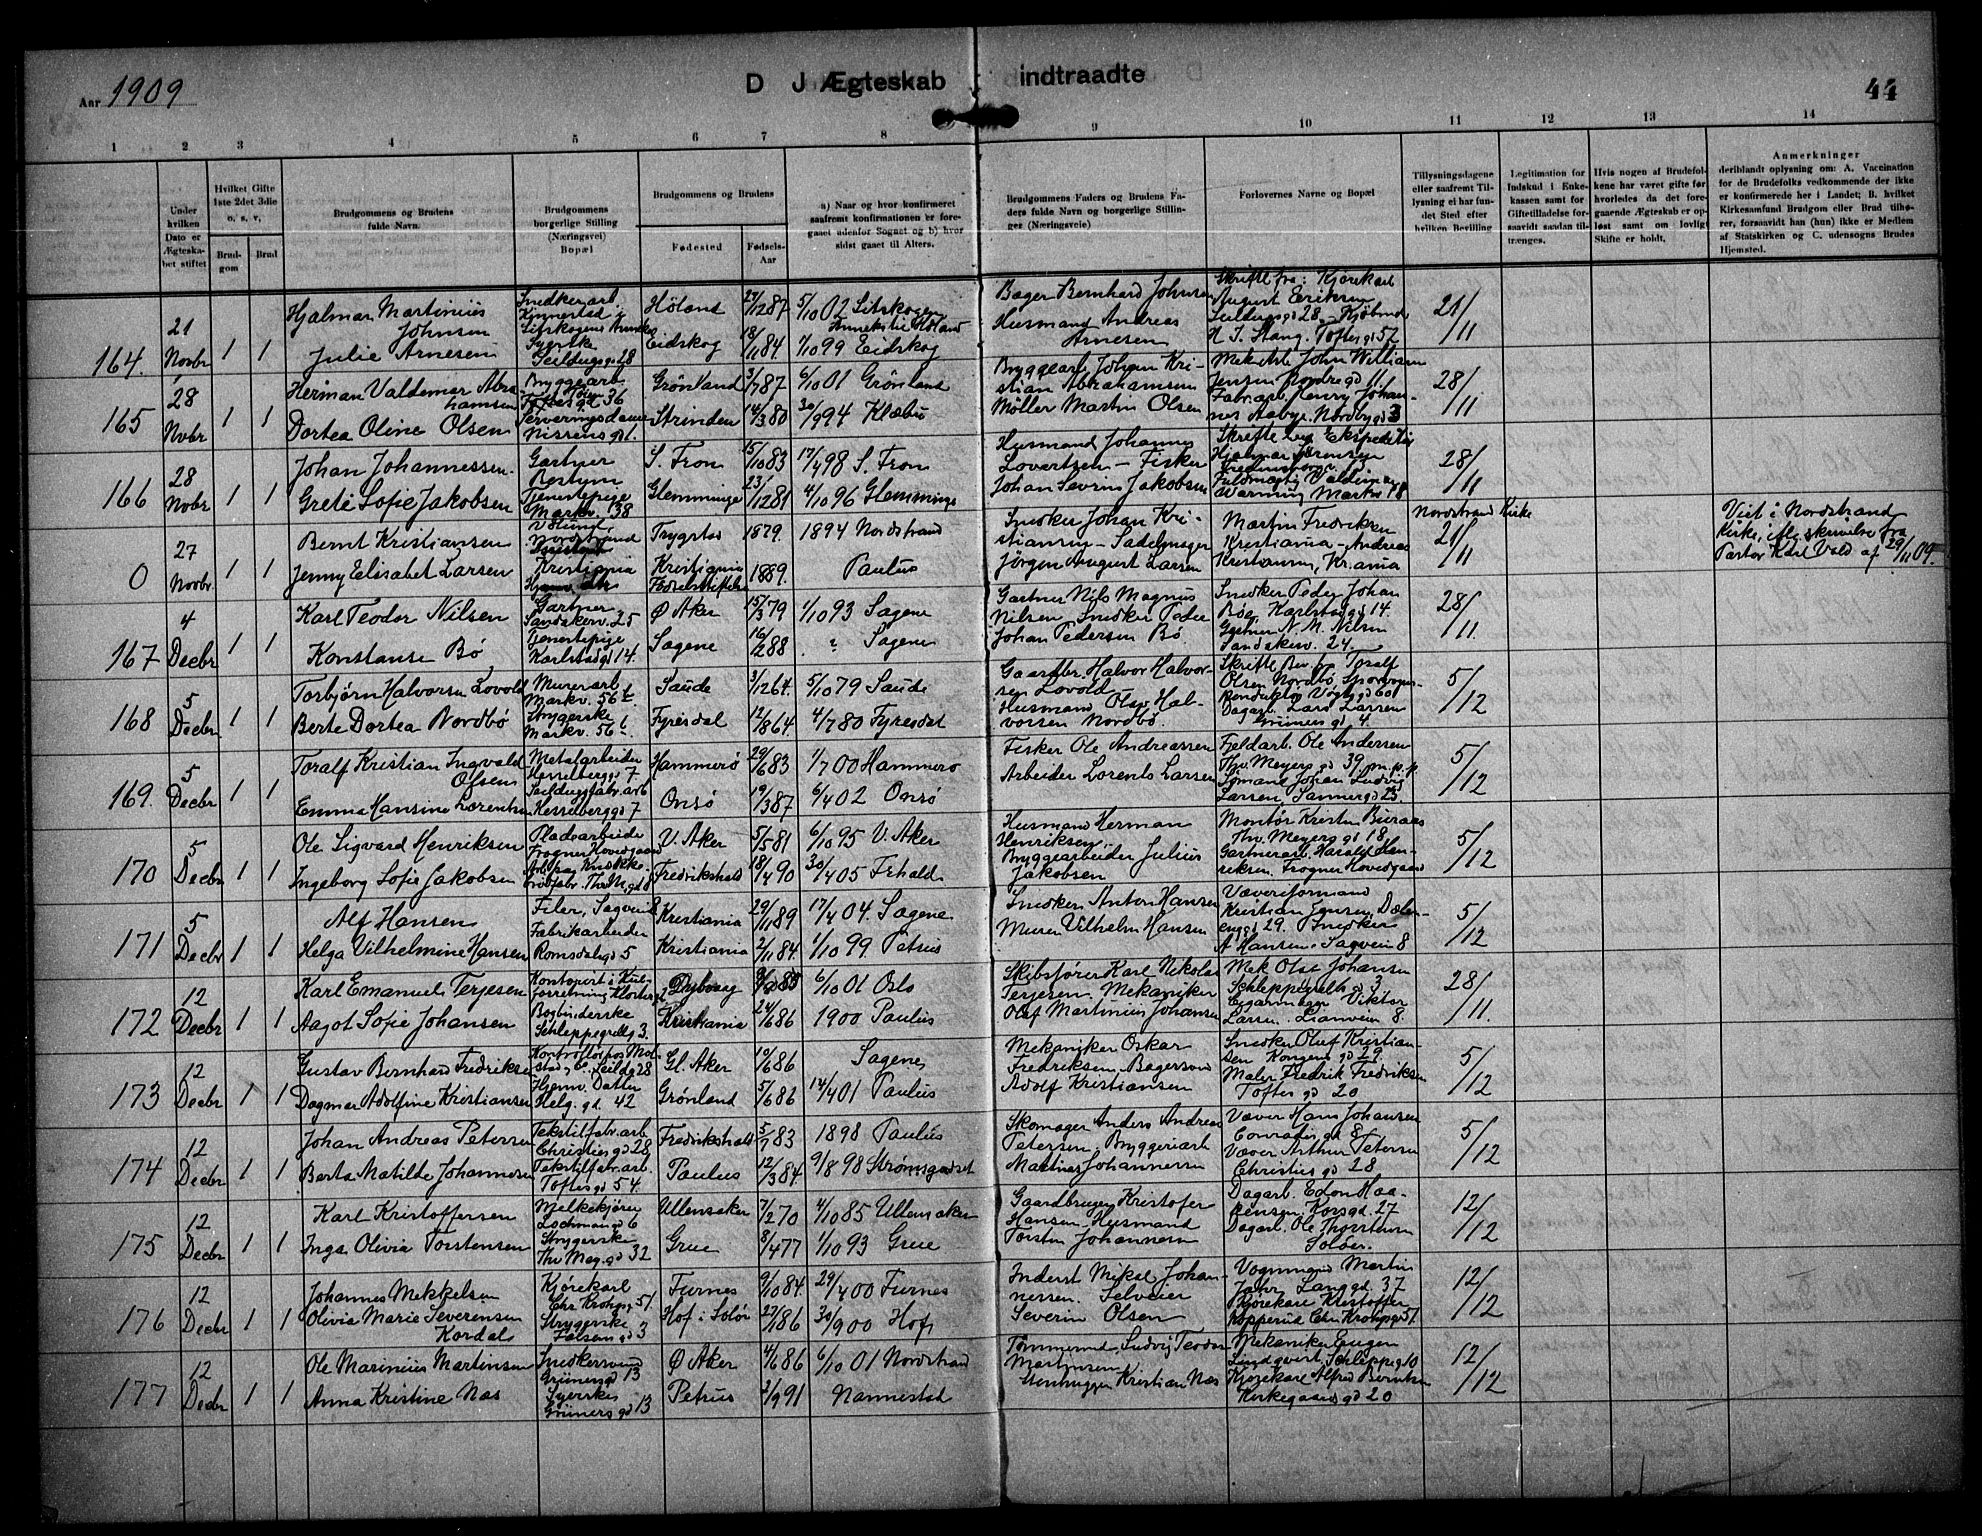 Aar 1909
D J Ægteskab indtraadte
44
1 2 3 4 5 6 7 8 9 10 11 12 13 14
Under hvilken Dato er Ægteskabet stiftet
Hvilket Gifte 1ste 2det 3die o. s. v,
Brudgom
Brud
Brudgommens og Brudens fulde Navn.
Brudgommens borgerlige Stilling (Næringsvei) Bopæl
Brudgommens og Brudens
Fødested
Fødsels-Aar
a) Naar og hvor konfirmeret saafremt konfirmationen er foregaaet udenfor Sognet og b) hvor sidst gaaet til Alters.
Brudgommens Faders og Brudens Faders fulde Navn og borgerlige Stillinger (Næringsveie)
Forlovernes Navne og Bopæl
Tillysningsdagene eller saafremt Tillysning ei har fundet Sted efter hvilken Bevilling
Legitimation for Indskud i Enkekassen samt for Giftetilladelse forsaavidt saadan tiltrænges.
Hvis nogen af Brudefolkene har været gifte før hvorledes da det foregaaende Ægteskab er opløst samt om lovlig Skifte er holdt.
Anmerkninger
deriblandt oplysning om: A. Vaccination for de Brudefolks vedkommende der ikke er konfirmerede her i Landet; B. hvilket Kirkesamfund Brudgom eller Brud tilhører, forsaavidt han (hun) ikke er Medlem af Statskirken og C. udensogns Brudes Hjemsted.
164. 21 Novbr 1 1
Hjalmar Martinius Johnsen
Julie Arnesen
Snedkerarb.
Syerske
Seildugsgd 28
Høland 27/12 87 5/10 02 Sitskogen Annekstil Høland
Eidskog 18/11 84. 1/10 99 Eidskog
Bager Bernhard Johnsen
Husmand Andreas Arnesen
Skriftl. fra: Kjørekarl
August Eriksen
Seildugsgd 28 Kjøbmd
H. J. Stang. Toftesgd 52
21/11
165 28 Nvbr 1 1
Herman Valdemar Abrahamsen
Dortea Oline Olsen
Bryggearb.
Toftesgd 36
Serveringsdame
Nissensgd 1.
Grønland 3/7 87 6/10 01 Grønland
Strinden 14/3 80 30/9 94 Klæbu
Bryggearb Johan Kristian Abrahamsen
Møller Martin Olsen
Mek Arb. John William
Jensen Nordregd 11.
Fabr.arb. Henry Johannes Aabye. Nordbygd 3
28/11
166 28 Novbr 1 1
Johan Johannessen.
Grete Sofie Jakobsen
Gartner
Bestum
Tjenestepige
Markv. 38
S. Fron 15/10 83 17/4 98 S. Fron
Glemminge 23/12 81 4/10 96 Glemminge
Husmand Johannes
Lovertsen – Fisker
Johan Severin Jakobsen
Skriftl. bev. Ekspeditør
Hjalmar Sørensen
Fuldmægtig Valdemar
Warming Markv 18
28/11
0 27 Novbr 1 1
Bernt Kristiansen
Jenny Elisabet Larsen
Nordstrand
Kristiania
Trygstad 1879. 1894 Nordstrand
Kristiania Fødselsstiftelse 1889. Paulus
Snedker Johan Kristiansen – Sadelmager
Jørgen August Larsen
Martin Fredriksen
Kristiania – Andreas
Kristiansen, Kr.ania
Nordstrand Kirke
21/11
Viet i Nordstrand
Kirke, iflg. skrivelse fra
Pastor Karl Vold af 29/11 09.
167 4 Decbr 1 1
Karl Teodor Nilsen
Konstanse Bø
Gartner
Sandakerv. 25
Tjenestepige
Karlstadgd 14.
Ø Aker 15/3 79 1/10 93 Sagene
Sagene 16/2 88 " Sagene
Gartner Nils Magnus
Nilsen, Snedker Peder
Johan Pedersen Bø
Snedker Peder Johan
Bøe, Karlstadgd 14.
Gartner N. M. Nilsen
Sandakerv. 24.
28/11.
168 5 Decbr 1 1
Torbjørn Halvorsen Lovold
Berte Dortea Nordbø
Murerarb
Markv. 56 b.
Strygerske
Markv. 56 b
Saude 3/12 64. 5/10 79 Saude
Fyresdal 12/8 64 4/7 80 Fyresdal
Gaardbr. Halvor Halvorsen Lovold
Husmand Olav Halvorsen Nordbø.
Skriftl Bev. fr. Toralf
Olsen Nordbø Sporvogns-
Konduktør Vogtsgd 60
Dagarb. Lars Larsen
Grünersgd 4.
5/12
169. 5 Decbr 1 1
Toralf Kristian Ingvald Olsen
Emma Hansine Lorentsen
Metalarbeider
Hesselbergsgd 7
Seildugsfabr.arb
Hesselbergsgd 7
Hammerø 29/6 83 1/7 00 Hammerø
Onsø 19/3 87 6/4 02 Onsø
Fisker Ole Andreassen
Arbeider Lorents Larsen
Fjeldarb. Ole Andersen
Thv. Meyersgd 39, m. p. p.
Sømand Johan Ludvig
Larsen, Sannergd 23.
5/12
170 5 Decbr 1 1
Ole Sigvard Henriksen
Ingeborg Sofie Jakobsen
Pladsarbeider
Frogner Hovedgaard
V. Aker 5/5 81 6/10 95 V. Aker
Fredrikshald 18/4 90 30/4 05 Frhald
Husmand Herman
Henriksen
Byggearbeider Julius
Jakobsen
Montør Kristen Buraas
Thv. Meyers gd 18
Gartnerarb. Harald Henriksen, Frogner Hovedgaard
5/12
171 5 Decbr 1 1
Alf Hansen
Helga Vilhelmine Hansen
Filer, Sagvein 8
Fabrikarbeider
Romsdalsgd 5
Kristiania 29/11 89 17/4 04. Sagene
Kristiania 2/11 84. 1/10 99. Petrus
Snedker Anton Hansen
Murer Vilhelm Hansen
Væveriformand
Kristian Jensen, Dælenenggd 29. Snedker
A Hansen, Sagvein 8
5/12
172 12 Decbr 1 1
Karl Emanuel Terjesen
Aagot Sofie Johansen
Kontorist i Kulforretning
Bogbinderske
Schleppegrellsg 3.
Dybvaag 6/10 01 Oslo
Kristiania 24/6 86 1900 Paulus
Skibsfører Karl Nikolai
Terjesen. Mekaniker
Olaf Martinius Johansen
Mek Olaf Johansen
Schleppegrellsgd 3
Cigarmager Viktor
Larsen. Lianvein 8.
28/11.
173 12 Decbr 1 1
Gustav Bernhard Fredriksen
Dagmar Adolfine Kristiansen
Hjemv. Datter
Helg. gd. 42
Gl. Aker 10/6 86 Sagene
Grønland 5/6 86 14/4 01 Paulus
Mekaniker Oskar
Fredriksen. Bagersvend
Adolf Kristiansen
Snedker Oluf Kristiansen Kongens gd 29
Maler Fredrik Fredriksen
Toftes gd 20
5/12
174 12 Decbr 1 1
Johan Andreas Petersen
Berta Matilde Johannesen
Tekstilfabr.arb
Christies gd 28
Tekstilfabr.arb.
Toftes gd 54.
Fredrikshald 5/7 83 1898 Paulus
Paulus 12/3 84. 9/8 98 Strømsgodset
Skomager Anders Andreas
Petersen, Bryggeriarb
Martines Johannesen
Væver Hans Johansen
Conradis gd 8
Væver Arthur Petersen
Christies gd 28
5/12
175 12 Decbr 1 1
Karl Kristoffersen
Inga Olivia Torstensen
Melkekjører
Lochmansgd 6
Strygerske
Thv Mey. gd 32
Ullensaker 7/2 70 4/10 85 Ullensaker
Grue 8/4 77 1/10 93 Grue
Gaardbruger Kristofer
Hansen – Husmand
Torsten Johannesen
Dagarb. Edon Haagensen, Korsgd. 27
Dagarb. Ole Thorstensen
Soløer.
12/12
176 12 Decbr 1 1
Johannes Mekkelsen
Olivia Marie Severensen Kordal
Kjørekarl
Chr Krohgsg 51.
Strygerske
Falsens gd 3
Furnes 9/10 84. 29/4 00 Furnes
Hof i Solør 27/1 86 30/9 00 Hof
Inderst Mikal Johannessen. Selveier
Severin Olsen
Vognmand Martin
Langgd. 37
Kjørekarl Kristoffer
Kopperud Chr Krohgsgd 51.
12/12
177 12 Decbr 1 1
Ole Marinius Martinsen
Anna Kristine Næs
Snedkersvend
Grünersgd 13
Syerske
Grüners gd 13
Ø Aker 4/6 86 6/10 01 Nordstrand
Petrus 2/9 91 Nannestad
Tømmermd. Ludvig Teodor
Martinsen
Stenhugger Kristian Næs
Mekaniker Eugen
Lindqvist, Schleppegd 10
Kjørekarl Alfred Berntsen
Kirkegaardsgd 20
12/12